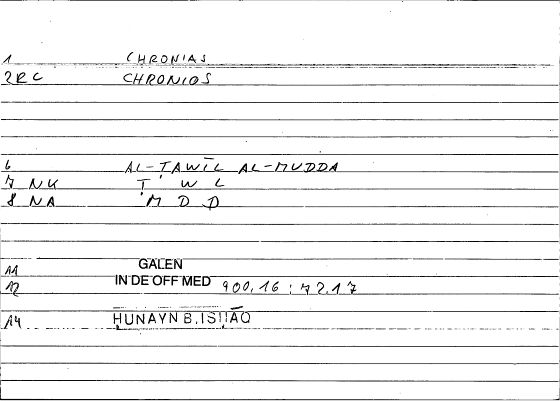 1 CHRONIAS
2RC CHRONIOS
6 AL-ṬAWĪL AL-MUDDA
7 NK Ṭ W L
8 NA M D D
A1 GALEN
A2 IN DE OFF MED 900,16 : 72.17
A4 ḤUNAYN B. ISḤĀQ